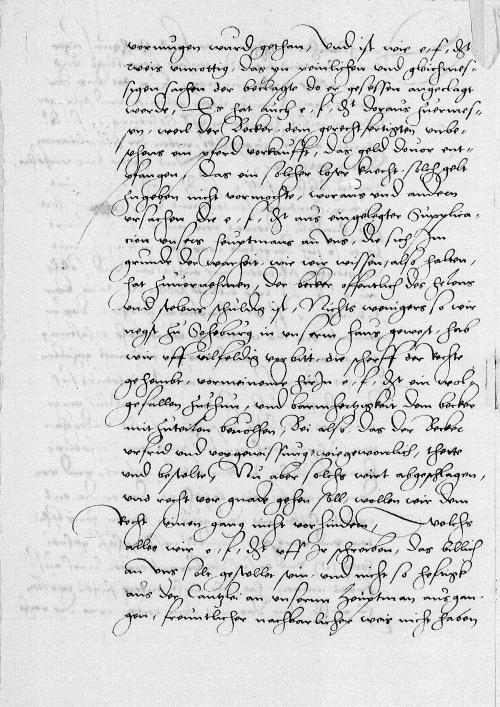 vormugen wurd gethan, Und ist wie e, f, dt
weis unnottig, das yn peinlichen und gleichmes-
sigen sachen der beclagte do er gesessen angeclagt
werde, Es hat auch e, f, dt doraus zuermes-
sen, weil der Becker, dem gerechtfertigten unbe-
sehens ein pferd vorkaufft, das geld dovor ent-
pfangen, das ein solcher loser knecht solch gelt
zugeben nicht vormochte, woraus und andern
ursachen die e, f, dt aus eingelegter Supplica-
cion unsers heuptmans an uns, die sich im
grunde der warheit wie wir wissen, also halten,
hat zuvornehmen, der becker offentlich des helens
und stelens schuldig ist, Nichts wenigers so wir
negst zu in unserm haus gewest, hab
wir uff vilfeldig vorbitt, die scherff der Rechte
gehembt, vormeinende hirjn e, f, dt ein wol-
gefallen zuthun, und barmhertzigkeit dem becker
mit zuteilen bevolhen, Bei also, das der Becker
urfrid und vorgewissung, wie gewonlich, thette
und bestelte, Nu aber solchs wirt abgeschlagen,
und recht vor gnade gehen soll, wollen wir dem
Recht seinen gang nicht vorhindern, welchs
alles wir e, f, dt uff jr schreiben, das billich
an uns solt gestellet sein, und nicht so hefftigk
aus der Cantzlei an unsern heuptman ausgan-
gen, freuntlicher nachbarlicher weis nicht haben